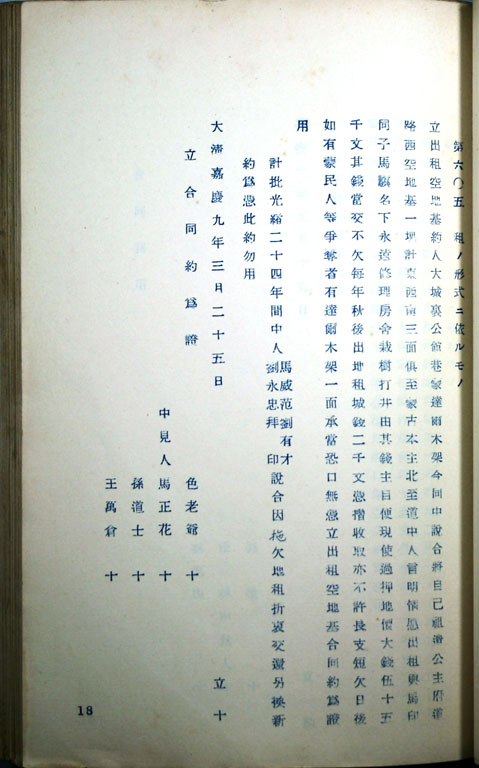 第六〇五　租ノ形式ニ依ルモノ
立出租空地基約人大城裏公館巷蒙達爾木架今同中說合將自己祖遺公主府道
路西空地基一塊計東西南三面俱至蒙古本主北至道中人言明情愿出租與馬印
同子馬驥名下永遠修理房舍栽樹打井由其錢主自便現使過押地價大錢伍十五
千文其錢當交不欠每年秋後出地租城錢二千文憑摺收取亦不許長支短欠日後
如有蒙民人等爭奪者有達爾木架一面承當恐口無憑立出租空地基合同約爲證
用
計批光緒二十四年間中人馬威范劉有才劉永忠拜印說合因拖欠地租折衷交還另換新
約爲憑此約勿用
大淸嘉慶九年三日二十五日　立十
立合同約爲證
中見人
色老爺　十
馬正花　十
孫道士　十
王萬倉　十
18